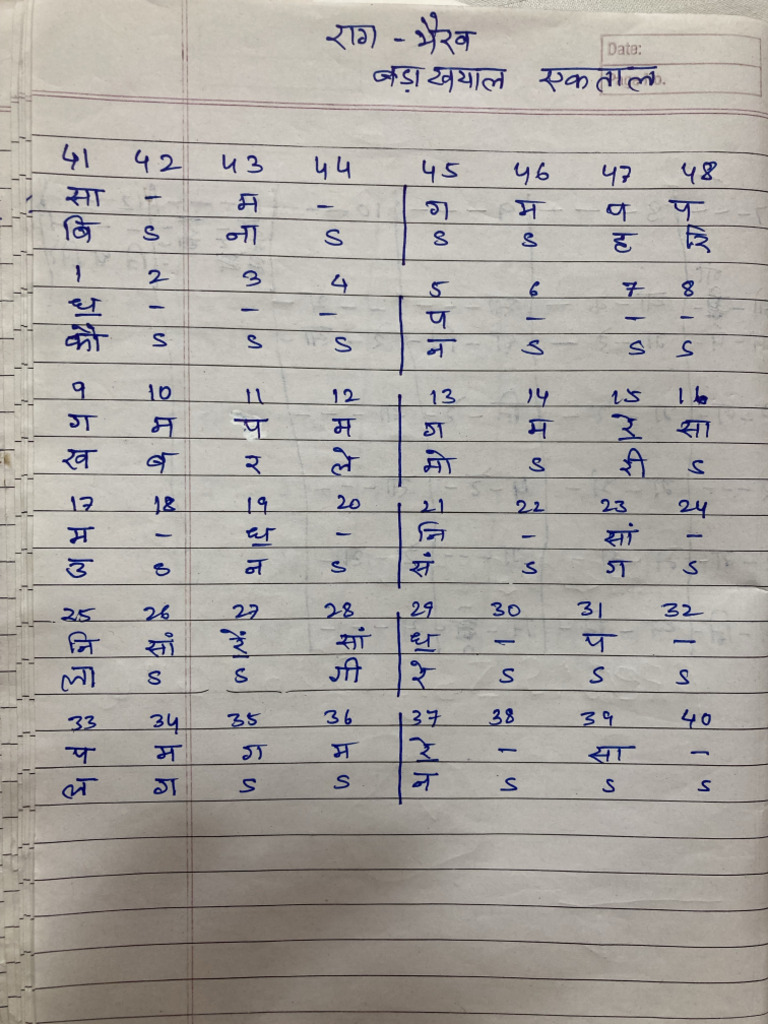 राग - भैरव
Date:
बड़ा खयाल एकताल
41 42 43 44 | 45 46 47 48
सा - म - | ग म प प
बि S ना S | S S ह रि
1 2 3 4 5 6 7 8
ध॒ - - - | प - - -
कौ S S S | न S S S
9 10 11 12 13 14 15 16
ग म प म | ग म रे॒ सा
ख ब र ले | मो S री S
17 18 19 20 21 22 23 24
म - ध॒ - | नि - सां -
उ S न S | सं S ग S
25 26 27 28 29 30 31 32
नि सां रें॒ सां | ध॒ - प -
ला S S गी | रे S S S
33 34 35 36 37 38 39 40
प म ग म | रे॒ - सा -
ल ग S S | न S S S